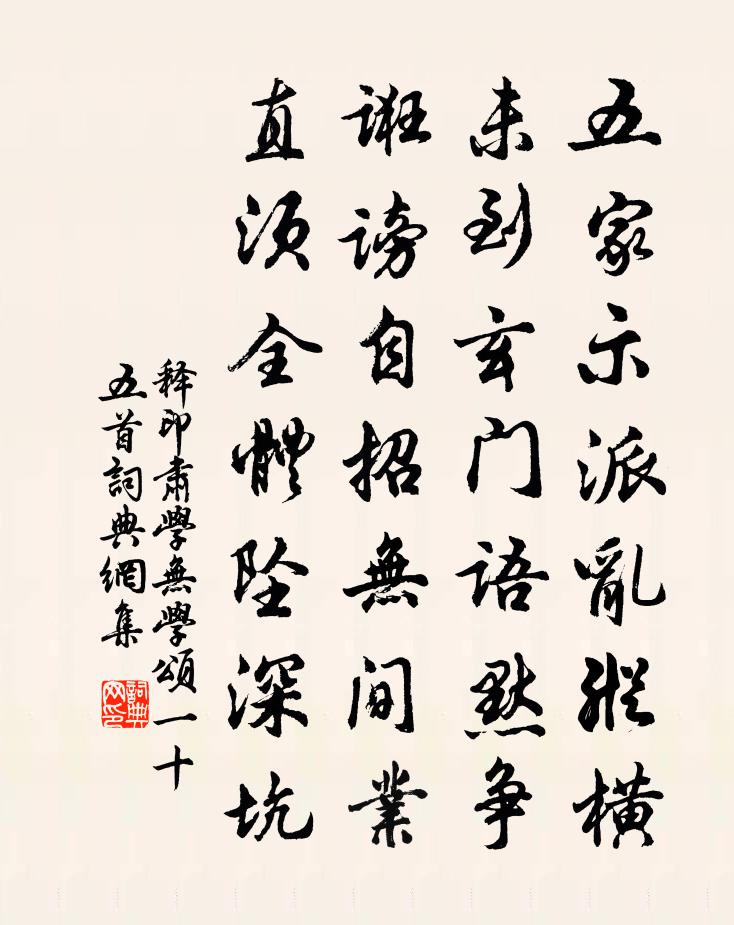 五家示派亂縱橫
未到玄門語默爭
誑謗自招無間業
直須全體墜深坑
释印肅學無學頌一十
五首詞典網集
詞典網印